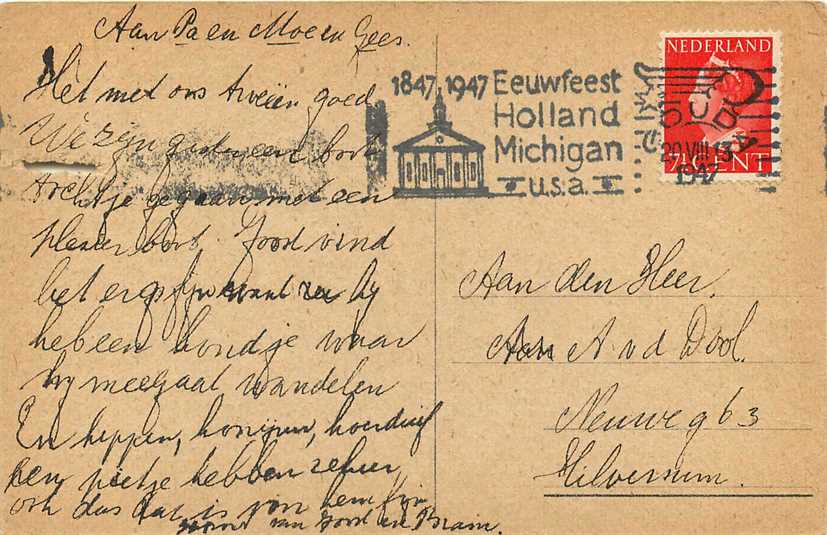 Aan Pa en Moe en Gees.
Het met ons tweeën goed
We zijn gisteren een boot
tochtje gegaan met een
plezier boot. Joost vind
het erg fijn want hy
heb een hondje waar
hy mee gaat wandelen
En kippen, konijnen,
een hebben ze hier
ook dus dat is voor hem fijn
van Joost en Bram.
1847 1947 Eeuwfeest
Holland
Michigan
u.s.a.
NEDERLAND
20 VIII 13
1947
7½ CENT
Aan den Heer.
A v d Dool.
Neuweg 63
Hilversum.